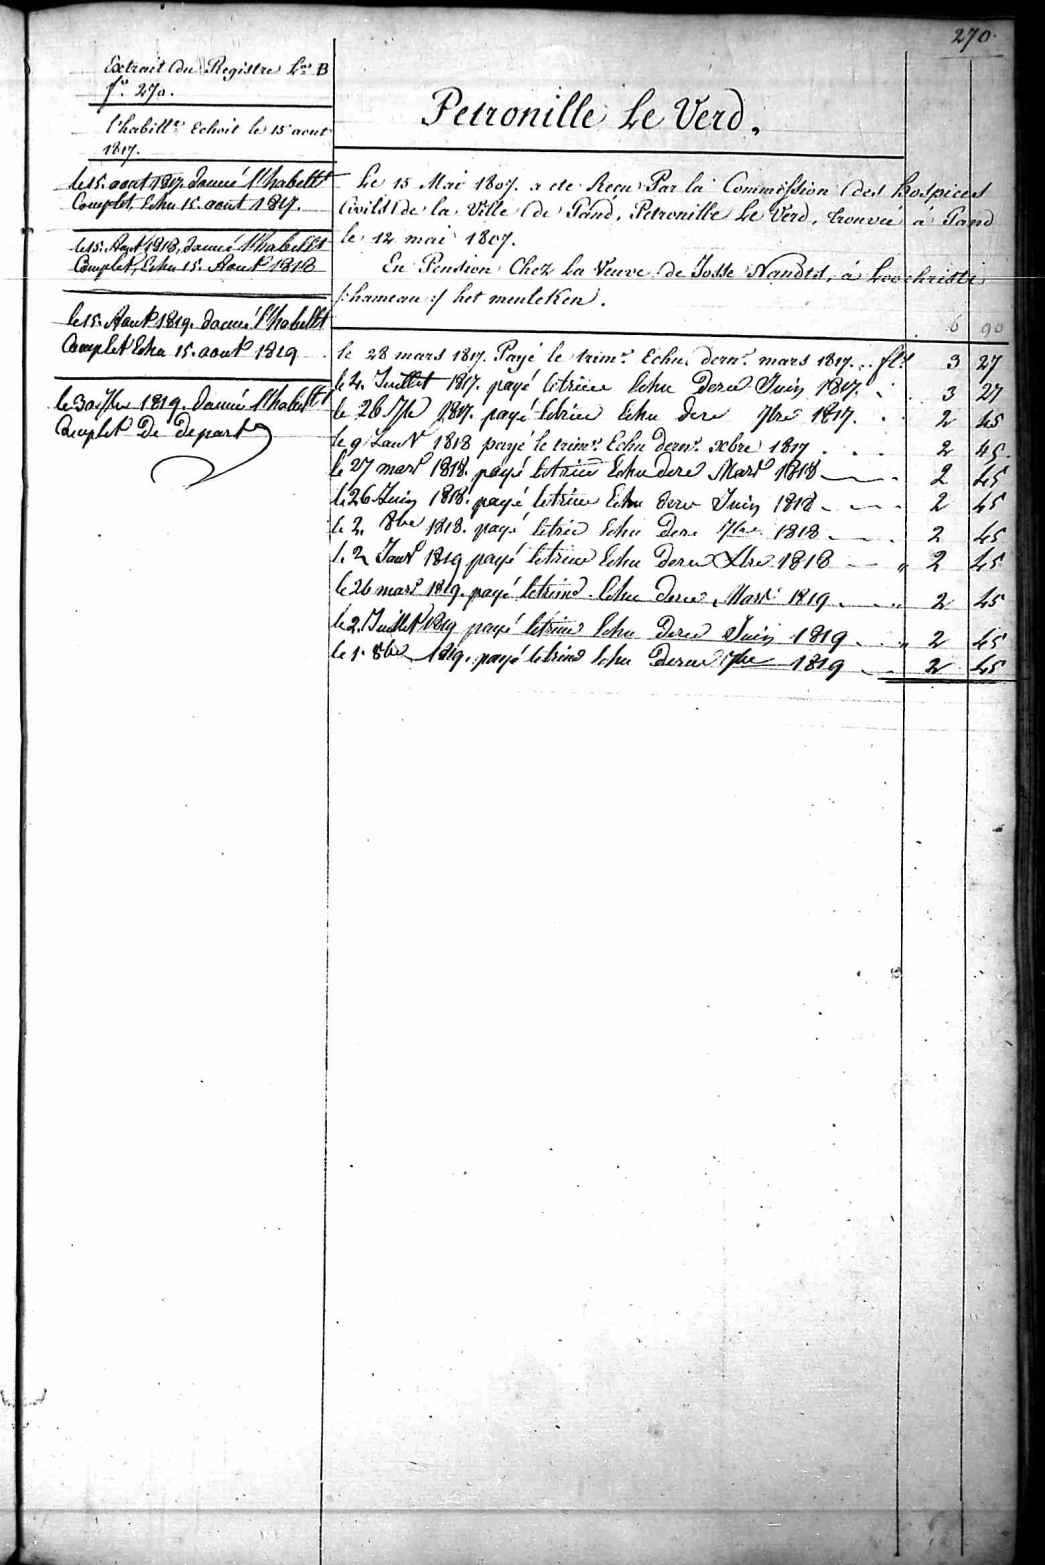 270.
Extrait du Registre Lra B
fo. 270.
l'habillt. Echoit le 15 aout
1817.
le 15. aout 1817. donné l'habellt
Complet, Echu 15. aout 1817.
le 15. Aout 1818, donné l'habellt
Complet, Echu 15. Aout 1818
le 15. Aout 1819. donné l'habellt
Complet Echu 15. aout 1819
le 30 7bre 1819. donné l'habellt
Complet De depart
Petronille Le Verd.
Le 15 Mai 1807. a eté Reçu Par la Commission des hospices
Civils de la Ville de Gand, Petronille Le Verd, trouvée à Gand
le 12 mai 1807.
En Pension Chez la Veuve de Josse Nandts, à Loochristi
/:hameau:/ het meuleken.
6 90
le 28 mars 1817. Payé le trimr. Echu dernr. mars 1817. . fls 3 27
le 2. Juillet 1817. payé letrim Echu Dere Juin 1817. . 3 27
le 26 7bre 1817. payé letrim Echu dere 7bre 1817. . . 2 45
le 9 Janv 1818 payé le trimr. Echu dernr. xbre 1817 . . . 2 45.
le 27 mars 1818. payé letrim Echu dere Mars 1818 2 45
le 26 Juin 1818. payé letrim Echu dere Juin 1818 2 45
le 2. 8bre 1818. payé letrim Echu dere 7bre 1818 2 45
le 2 Janv 1819 payé letrim Echu dere Xbre 1818 " 2 45
le 26 mars 1819. payé letrim Echu dere Mars 1819 " 2 45
le 2. Juillet 1819 payé letrim Echu Dere Juin 1819 " 2 45
le 1. 8bre 1819. payé letrim Echu Dere 7bre 1819 2 45